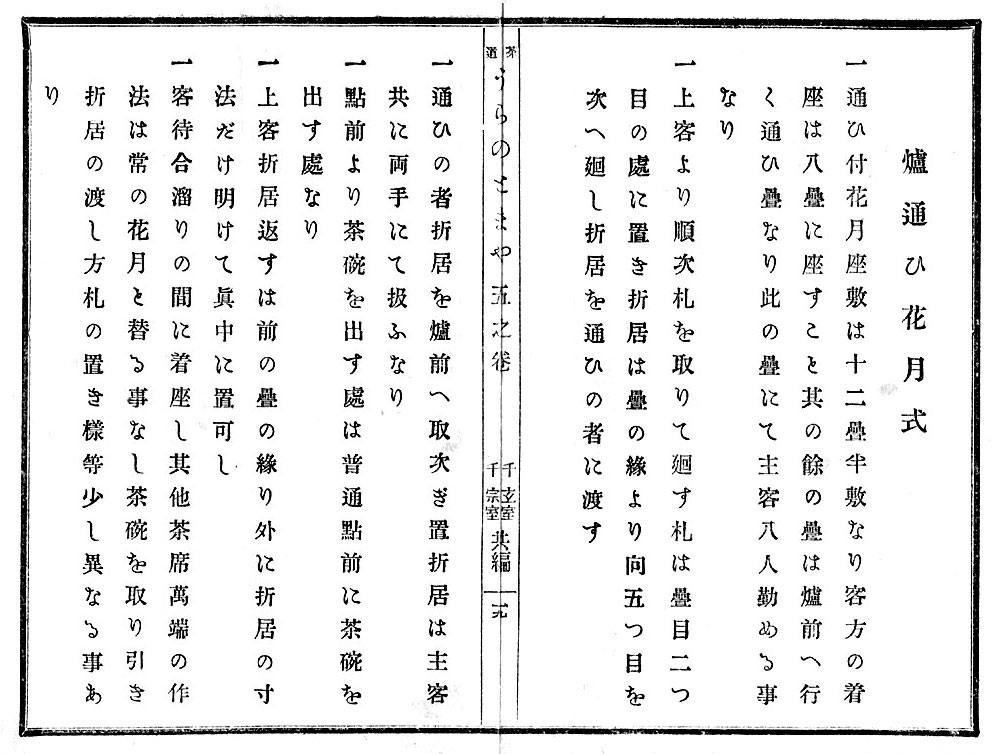 爐通ひ花月式
一通ひ付花月座敷は十二疊半敷なり客方の着
座は八疊に座すことと其の餘の疊は爐前へ行
く通ひ疊なり此の疊にて主客八人勤める事
なり
一上客より順次札を取りて廻す札は疊目二つ
目の處に置き折居は疊の緣より向五つ目を
次へ廻し折居を通ひの者に渡す
茶道
うらのとまや五之卷
千玄室
千宗室
共編
一九
一通ひの者折居を爐前へ取次ぎ置折居は主客
共に両手にて扱ふなり
一點前より茶碗を出す處は普通點前に茶碗を
出す處なり
一上客折居返すは前の疊の緣り外に折居の寸
法だけ明けて眞中に置可し
一客待合溜りの間に着座し其他茶席萬端の作
法は常の花月と替る事なし茶碗を取り引き
折居の渡し方札の置き樣等少し異なる事あ
り